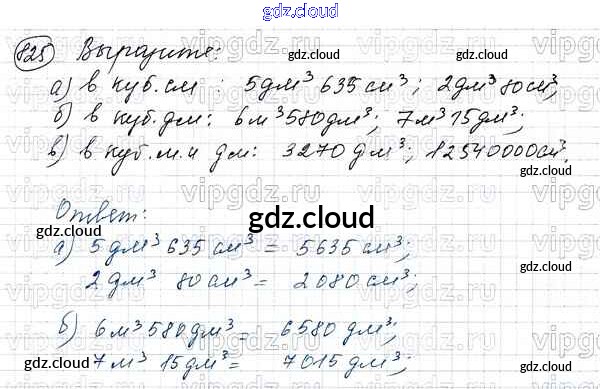 gdz.cloud
825 Выразите:
а) в куб.см : 5дм³ 635см³; 2дм³ 80см³,
б) в куб.дм: 6м³ 580дм³; 7м³ 15дм³;
в) в куб.м.и дм: 3270 дм³; 12540000см³.
Ответ:
а) 5 дм³ 635 см³ = 5635 см³;
2 дм³ 80 см³ = 2080 см³;
б) 6 м³ 580 дм³ = 6580 дм³;
7 м³ 15 дм³ = 7015 дм³;
gdz.cloud
gdz.cloud
gdz.cloud
gdz.cloud
gdz.cloud
gdz.cloud
gdz.cloud
vipgdz.ru
vipgdz.ru
vipgdz.ru